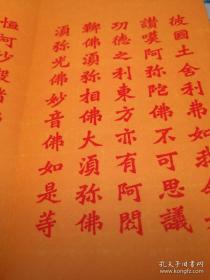 彼國土舍利弗如我今
讚嘆阿彌陀佛不可思議
功德之利東方亦有阿閦
鞞佛須彌相佛大須彌佛
須彌光佛妙音佛如是等
恒河沙數諸